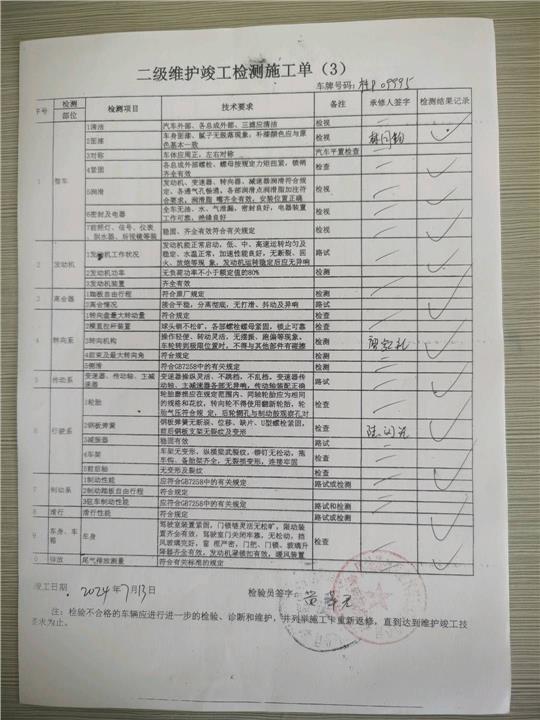 二级维护竣工检测施工单（3）
车牌号码：桂P09995
序号 检测部位 检测项目 技术要求 备注 承修人签字 检测结果记录
1 整车 1清洁 汽车外部、各总成外部、三滤应清洁 检视
2面漆 车身面漆、腻子无脱落现象，补漆颜色应与原色基本一致 检视
3对称 车体应周正，左右对称 汽车平置检查
4紧固 各总成外部螺栓、螺母按规定力矩扭紧，锁销齐全有效 检查
5润滑 发动机、变速器、转向器、减速器润滑符合规定，各通气孔畅通，各部润滑点润滑脂加注符合要求，润滑脂嘴齐全有效，安装位置正确 检视
6密封及电器 全车无油、水、气泄漏，密封良好，电器装置工作可靠，绝缘良好 检视
7前照灯、信号、仪表、刮水器、后视镜等装 稳固、齐全有效符合有关规定 检视
2 发动机 1发动机工作状况 发动机能正常启动，低、中、高速运转均匀及稳定、水温正常，加速性能良好，无断裂、回火、放炮等现象，发动机运转稳定后应无异响 路试
2发动机功率 无负荷功率不小于额定值的80% 检测
3发动机装置 齐全有效
3 离合器 1踏板自由行程 符合原厂规定 检测
2离合情况 接合平稳，分离彻底，无打滑、抖动及异响 路试
4 转向系 1转向盘最大转动量 符合规定 检查
2横直拉杆装置 球头销不松旷，各部螺栓螺母紧固，锁止可靠 检查
3转向机构 操作轻便、转动灵活，无摆振、跑偏等现象，车轮转到极限位置时，不得与其他部件有碰擦 检测
4前束及最大转向角 符合规定 检测
5侧滑 符合GB7258中的有关规定 检测
5 传动系 变速器、传动轴、主减速器 变速器操纵灵活、不跳档、不乱档，变速器传动轴、主减速器各部无异响，传动轴装配正确 路试
6 行驶系 1轮胎 轮胎磨损应在规定范围内，同轴轮胎应为相同的规格和花纹，转向轮不得使用翻新轮胎，轮胎气压符合规定，后轮辋孔与制动鼓观察孔对 检查
2钢板弹簧 钢板弹簧无断裂、位移、缺片、U型螺栓紧固，前后钢板支架无裂纹及变形 检查
3减振器 稳固有效 路试
4车架 车架无变形，纵横梁无裂纹，铆钉无松动，拖车钩、备胎架齐全，无裂损变形，连接牢固 检查
5前后轴 无变形及裂纹 检查
7 制动系 1制动性能 应符合GB7258中的有关规定 路试或检测
2制动踏板自由行程 符合规定
3驻车制动性能 应符合GB7258中的有关规定 路试和检测
8 滑行 滑行性能 符合规定 路试或检测
9 车身、车箱 车身 驾驶室装置紧固，门锁链灵活无松旷，限动装置齐全有效，驾驶室门关闭牢靠，无松动，挡风玻璃完好，窗框严密，门把、门锁、玻璃升降器齐全有效，发动机罩锁扣有效，暖风装置 检查
0 排放 尾气排放测量 符合有关标准的规定 检测
竣工日期. 2024年7月13日 检验员签字：
注：检验不合格的车辆应进行进一步的检验、诊断和维护，并列举施工卡重新返修，直到达到维护竣工技
要求为止。